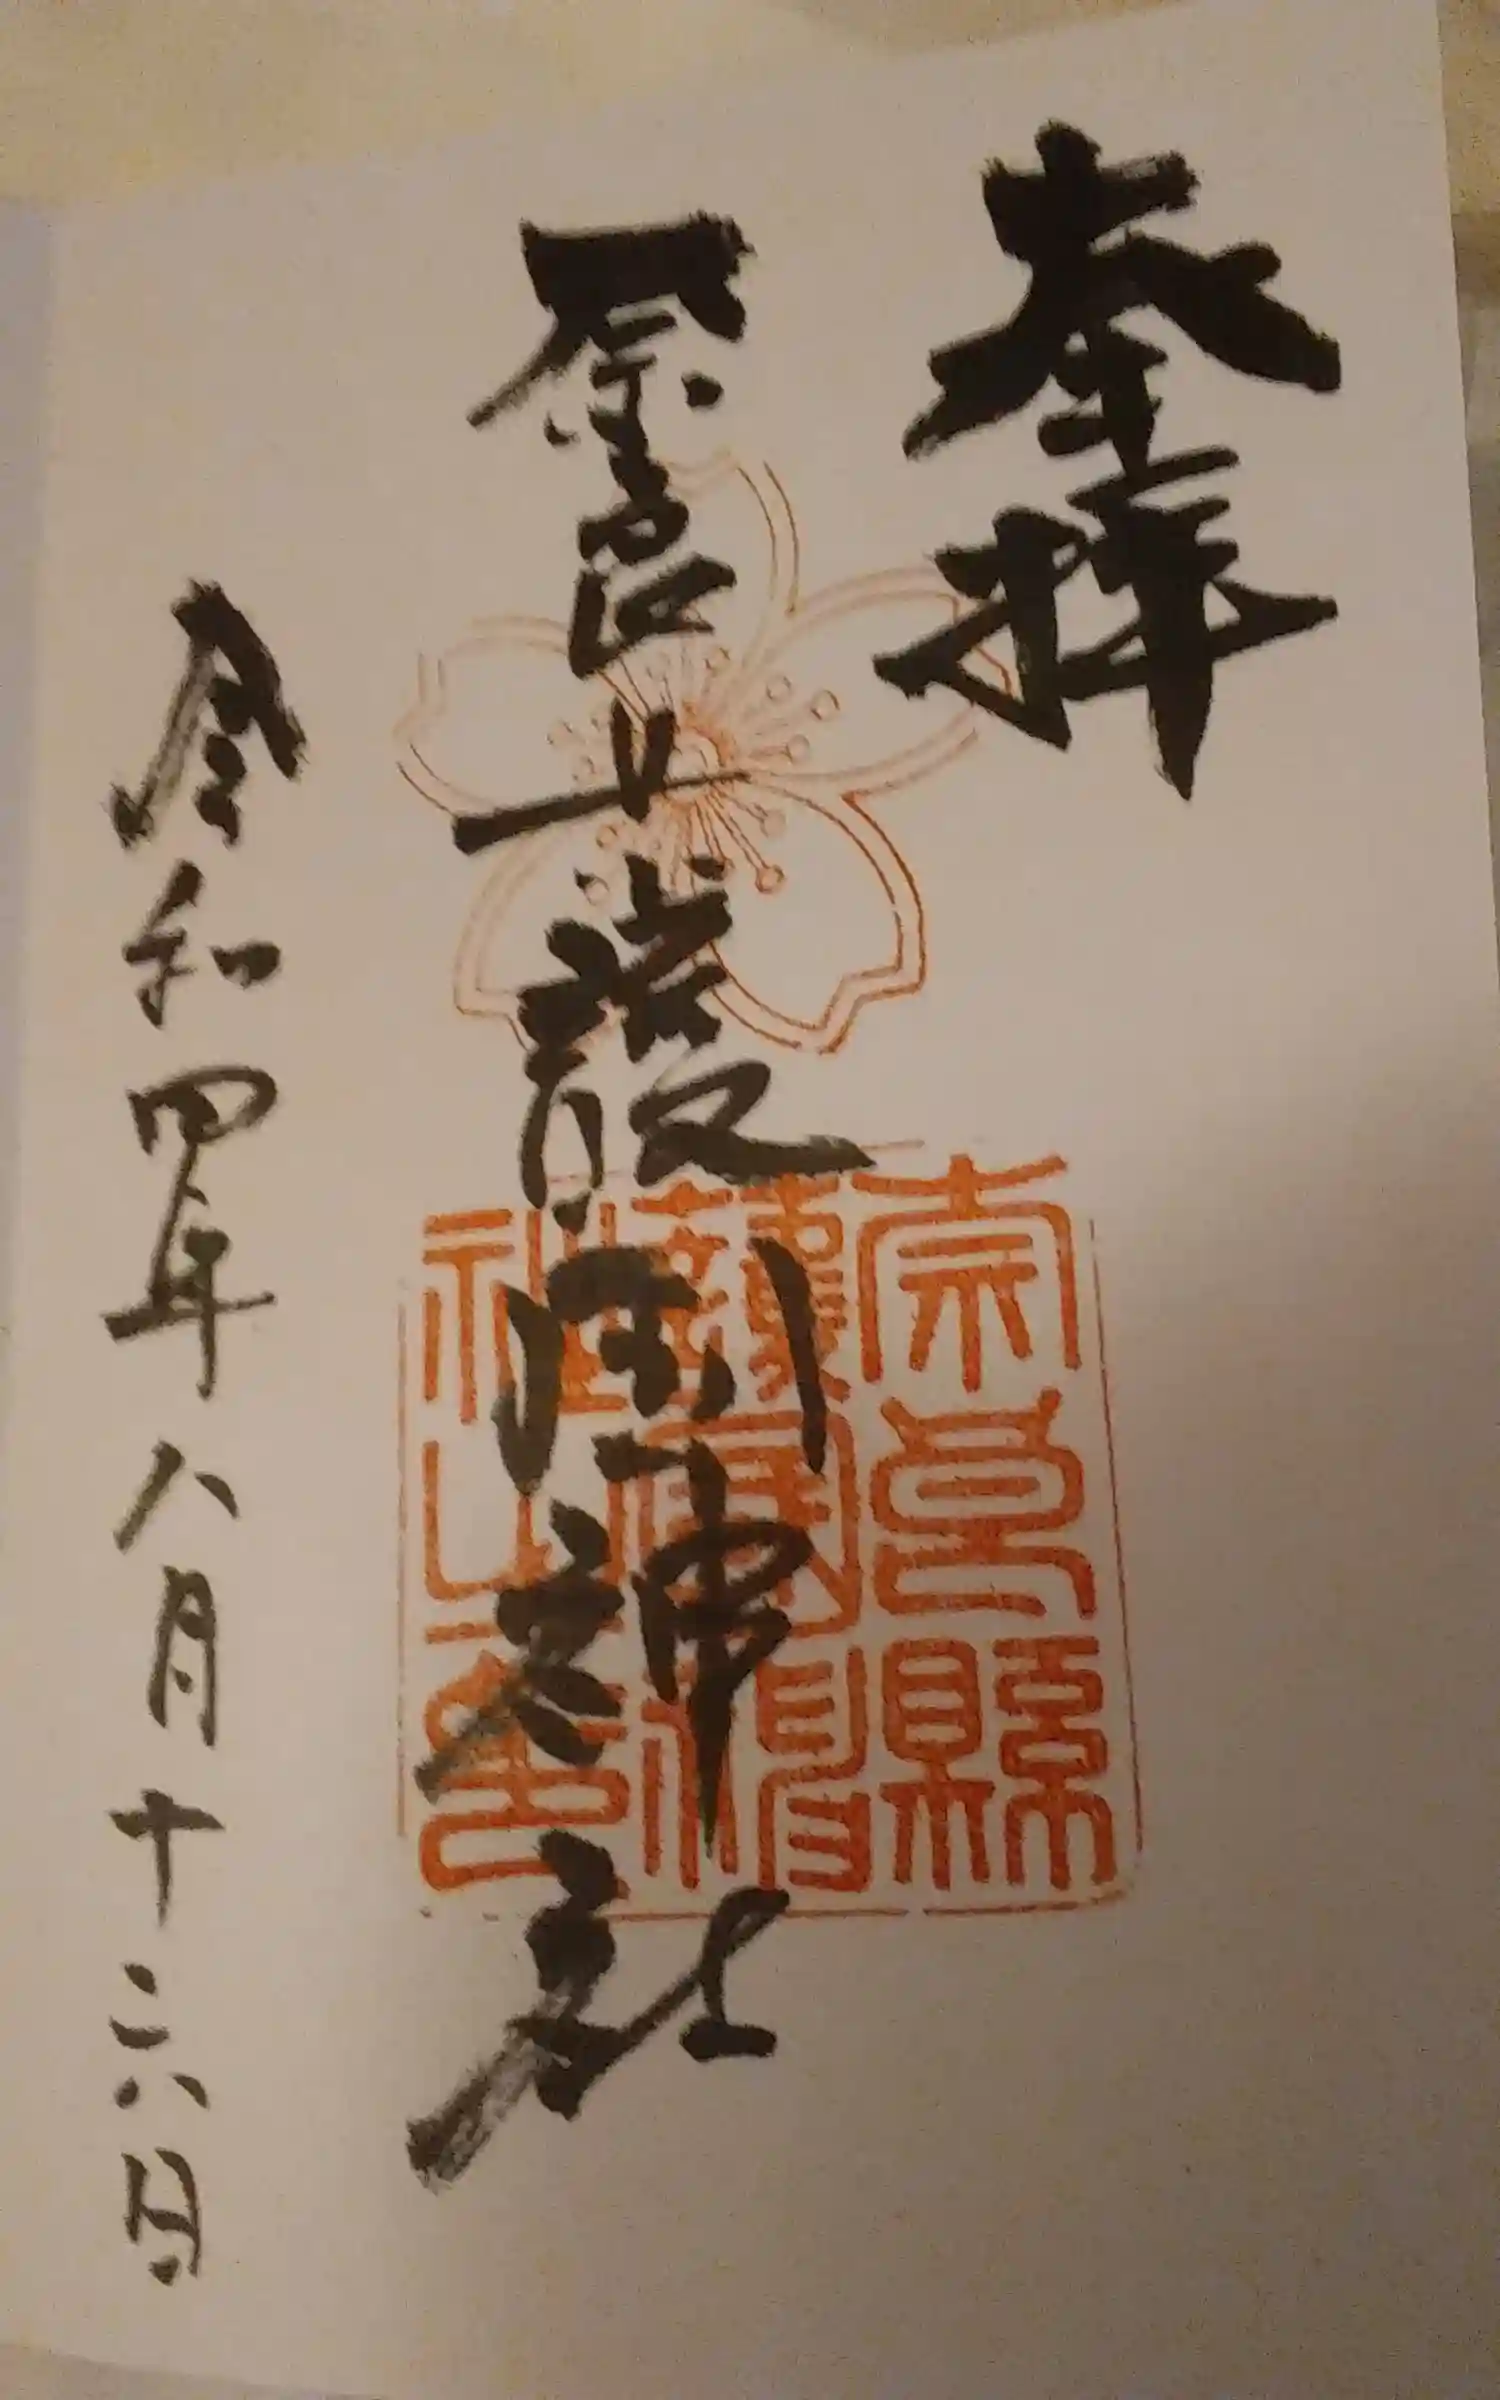 奉拝
奈良縣護国神社
令和四年八月十六日
奈良縣
護國神
社之印